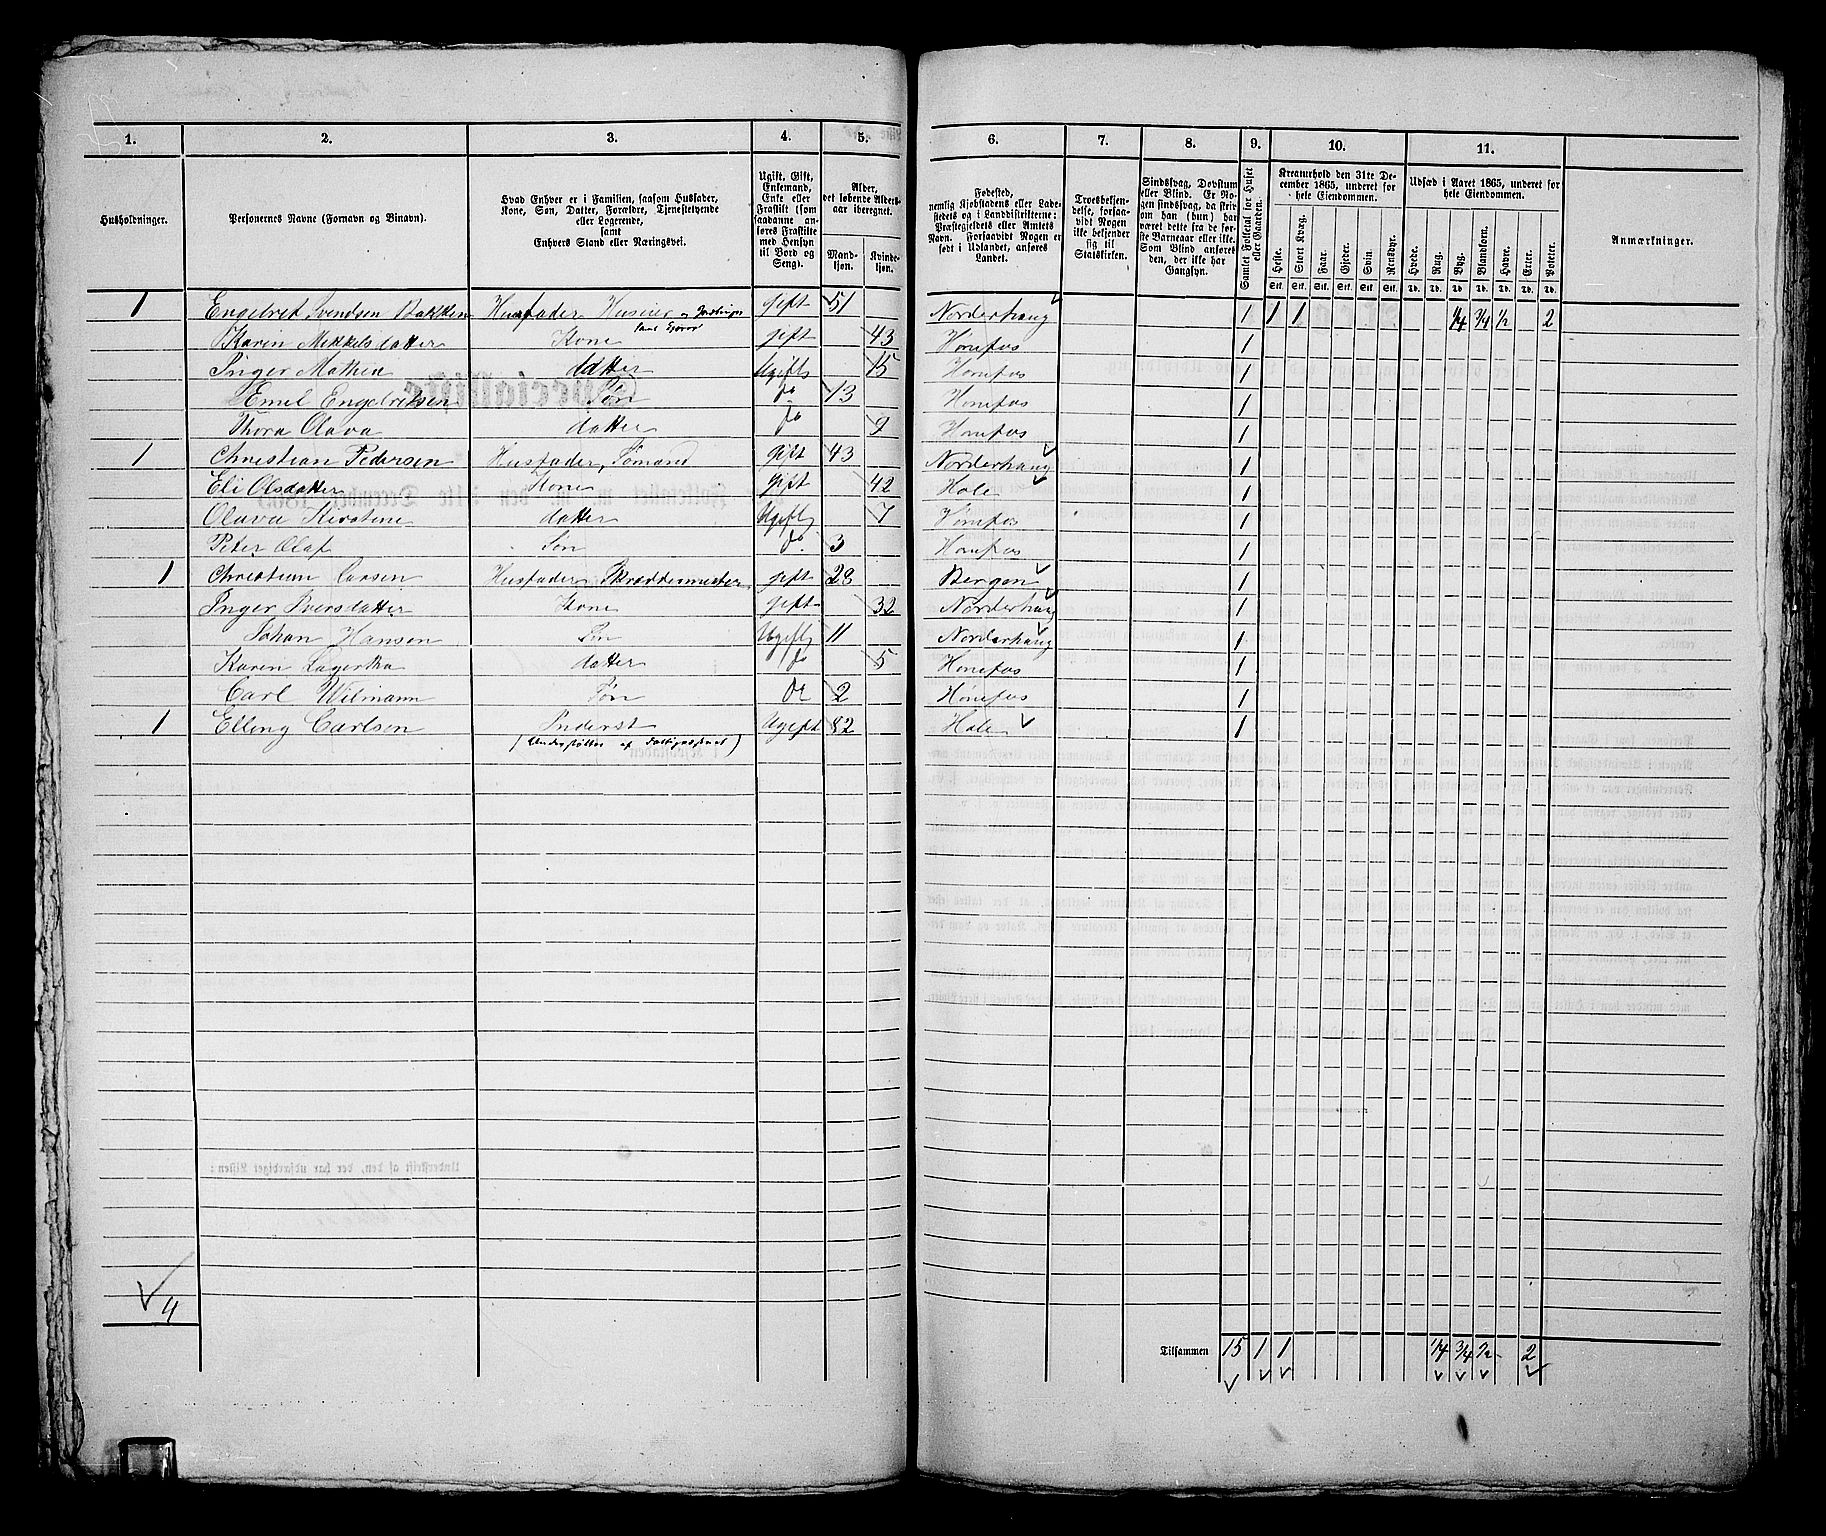 1. 2. 3. 4. 5. 6. 7. 8. 9. 10. 11.
Husholdninger.
Personernes Navne (Fornavn og Binavn).
Hvad Enhver er i Familien, saasom Husfader,
Kone, Søn, Datter, Forældre, Tjenestetyende
eller Logerende,
samt
Enhvers Stand eller Næringsvei.
Ugift, Gift,
Enkemand,
Enke eller
Fraskilt (som
saadanne an-
føres Fraskilte
med Hensyn
til Bord og
Seng).
Alder,
det løbende Alders-
aar iberegnet.
Mand-
kjøn.
Kvinde-
kjøn.
Fødested,
nemlig Kjøbstadens eller Lade-
stedets og i Landdistrikterne:
Præstegjeldets eller Amtets
Navn. Forsaavidt Nogen er
født i Udlandet, anføres
Landet.
Troesbekjen-
delse, forsaa-
vidt Nogen
ikke bekjender
sig til
Statskirken.
Sindssvag, Døvstum
eller Blind. Er No-
gen sindssvag, da skriv
om han (hun) har
været dette fra de før-
ste Barneaar eller ikke.
Som Blind anføres
den, der ikke har
Gangsyn.
Samlet Folketal for Huset
eller Gaarden.
Kreaturhold den 31te De-
cember 1865, underet for
hele Eiendommen.
Heste. Stort Kvæg. Faar. Gjeder. Svin. Rensdyr.
Stk. Stk. Stk. Stk. Stk. Stk.
Udsæd i Aaret 1865, underet for
hele Eiendommen.
Hvede. Rug. Byg. Blandkorn. Havre. Erter. Poteter.
Td. Td. Td. Td. Td. Td. Td.
Anmærkninger.
1 Engebret Svendsen Bakken Husfader Huseier gift 51 Norderhaug 1 1 1 1/4 3/4 1/2 2
Karen Mikkelsdatter Kone gift 43 Hønefos 1
Inger Mathea datter Ugift 15 Hønefos 1
Emil Engebritsen Søn do 13 Hønefos 1
Thora Olava datter do 9 Hønefos 1
1 Christian Pedersen Husfader, Sømand gift 43 Norderhaug 1
Eli Olsdatter Kone gift 42 Hole 1
Olava Kirstine datter Ugift 7 Hønefos 1
Peter Olaf Søn do 3 Hønefos 1
1 Christian Larsen Husfader Skræddermester gift 28 Bergen 1
Inger Iversdatter Kone gift 32 Norderhaug 1
Johan Hansen Søn Ugift 11 Norderhaug 1
Karen Lagertha datter do 5 Hønefos 1
Carl Wilmann Søn do 2 Hønefos 1
1 Elling Carlsen Inderst Ugift 82 Hole 1
(Understøttes af Fattigvæsenet)
4
Tilsammen 15 1 1 1/4 3/4 1/2 2